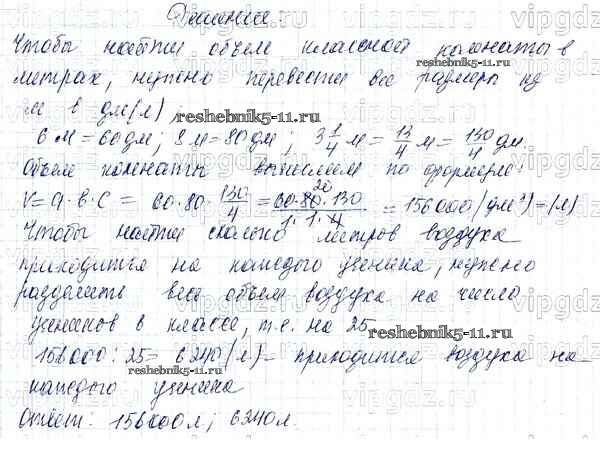 Решение
Чтобы найти объем классной комнаты в
метрах, нужно перевести все размеры из
м в дм(л)
6 м = 60 дм; 8 м = 80 дм; 3 1/4 м = 13/4 м = 130/4 дм.
Объем комнаты вычисляем по формуле:
V = a · b · c = 60 · 80 · 130/4 = 60·80·130/1·1·4 = 156000 (дм³) = (л)
Чтобы найти сколько литров воздуха
приходится на каждого ученика, нужно
разделить весь объем воздуха на число
учеников в классе, т.е. на 25
156000 : 25 = 6240 (л) - приходится воздуха на
каждого ученика
Ответ: 156000 л; 6240 л.
vipgdz.ru
reshebnik5-11.ru
reshebnik5-11.ru
reshebnik5-11.ru
reshebnik5-11.ru